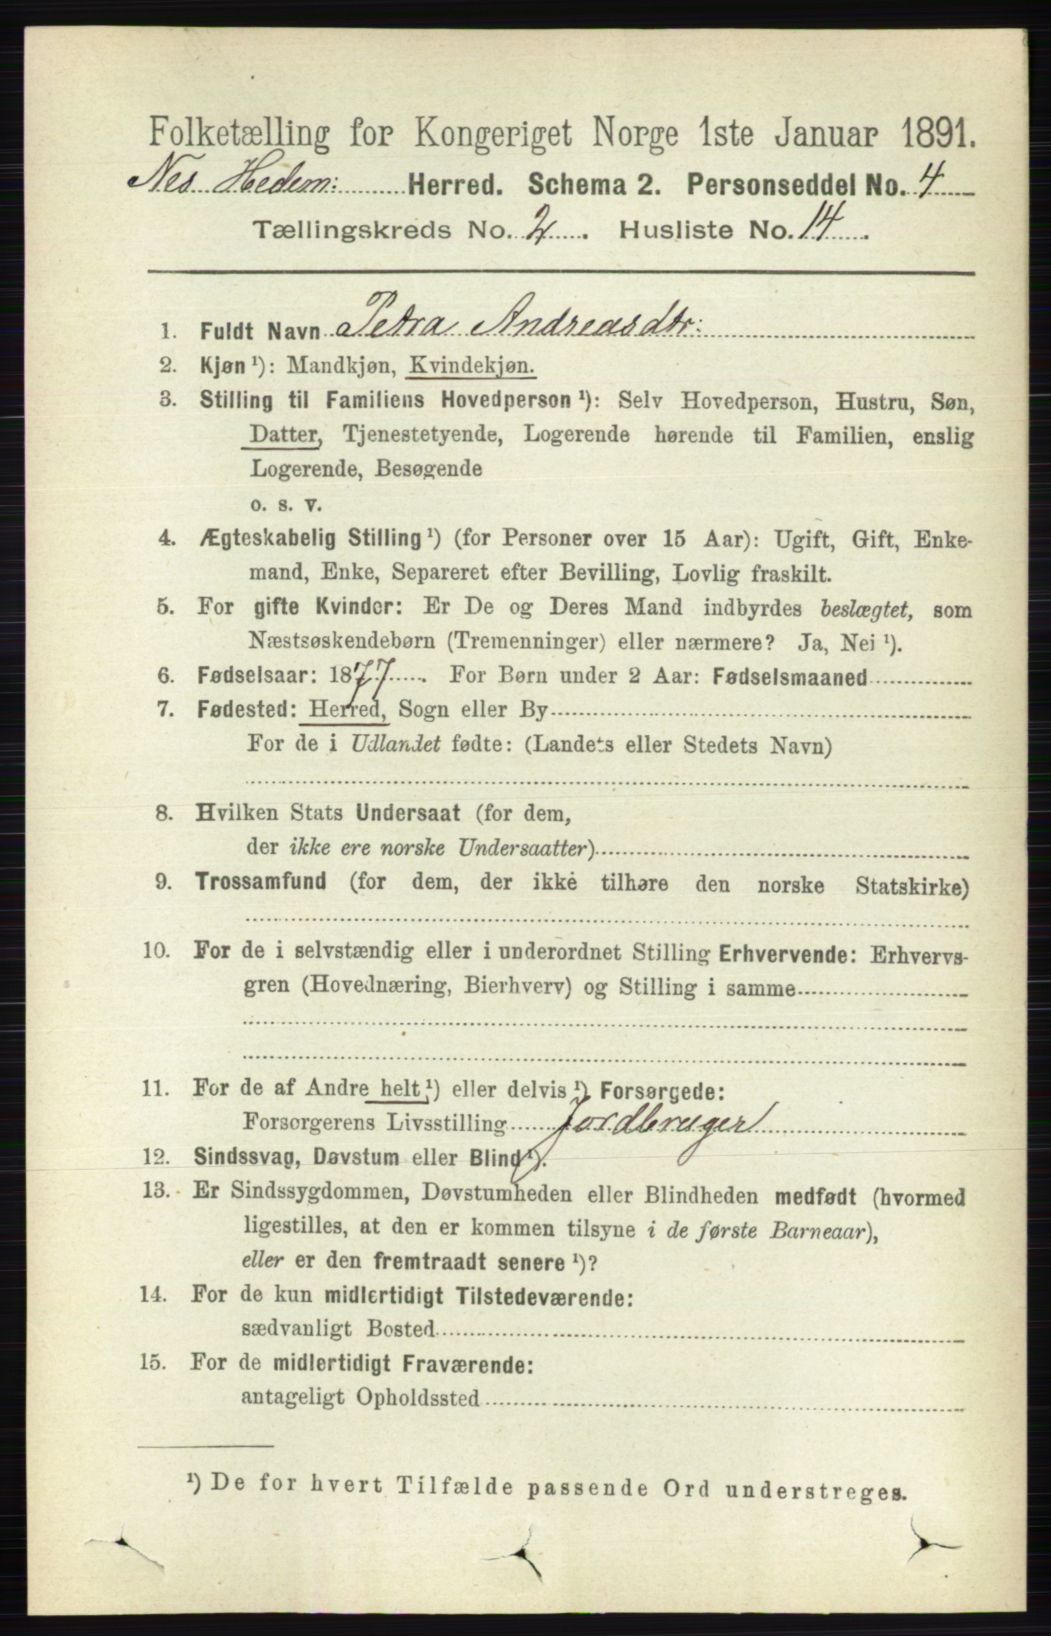 Folketælling for Kongeriget Norge 1ste Januar 1891.
Nes Hedem: Herred. Schema 2. Personseddel No. 4
Tællingskreds No. 2. Husliste No. 14.
1. Fuldt Navn Petra Andreasdtr:
2. Kjøn ¹): Mandkjøn, Kvindekjøn.
3. Stilling til Familiens Hovedperson ¹): Selv Hovedperson, Hustru, Søn,
Datter, Tjenestetyende, Logerende hørende til Familien, enslig
Logerende, Besøgende
o. s. v.
4. Ægteskabelig Stilling ¹) (for Personer over 15 Aar): Ugift, Gift, Enke-
mand, Enke, Separeret efter Bevilling, Lovlig fraskilt.
5. For gifte Kvinder: Er De og Deres Mand indbyrdes beslægtet, som
Næstsøskendebørn (Tremenninger) eller nærmere? Ja, Nei ¹).
6. Fødselsaar: 1877. For Børn under 2 Aar: Fødselsmaaned
7. Fødested: Herred, Sogn eller By
For de i Udlandet fødte: (Landets eller Stedets Navn)
8. Hvilken Stats Undersaat (for dem,
der ikke ere norske Undersaatter)
9. Trossamfund (for dem, der ikke tilhøre den norske Statskirke)
10. For de i selvstændig eller i underordnet Stilling Erhvervende: Erhvervs-
gren (Hovednæring, Bierhverv) og Stilling i samme
11. For de af Andre helt ¹) eller delvis ¹) Forsørgede:
Forsørgerens Livsstilling Jordbruger
12. Sindssvag, Døvstum eller Blind ¹).
13. Er Sindssygdommen, Døvstumheden eller Blindheden medfødt (hvormed
ligestilles, at den er kommen tilsyne i de første Barneaar),
eller er den fremtraadt senere ¹)?
14. For de kun midlertidigt Tilstedeværende:
sædvanligt Bosted
15. For de midlertidigt Fraværende:
antageligt Opholdssted
¹) De for hvert Tilfælde passende Ord understreges.